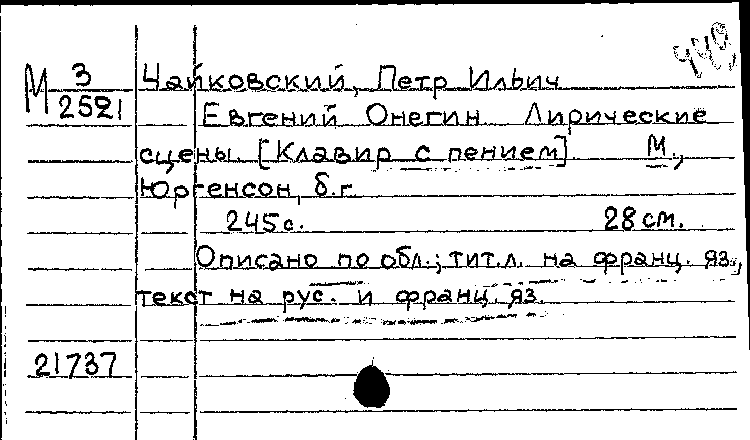 М 3/2521
Чайковский, Петр Ильич
Евгений Онегин Лирические
сцены. [Клавир с пением] М.,
Юргенсон, б.г.
245 с. 28 см.
Описано по обл.; тит.л. на франц. яз.,
текст на рус. и франц. яз.
21737